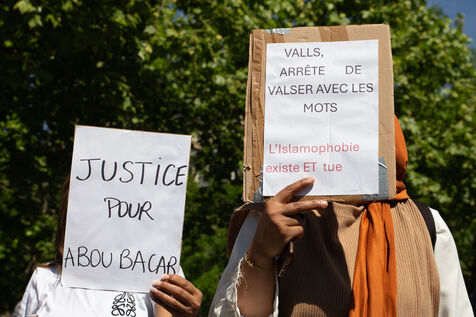 JUSTICE
POUR
ABOU BACAR
VALLS,
ARRÊTE DE
VALSER AVEC LES
MOTS
L'Islamophobie
existe ET tue